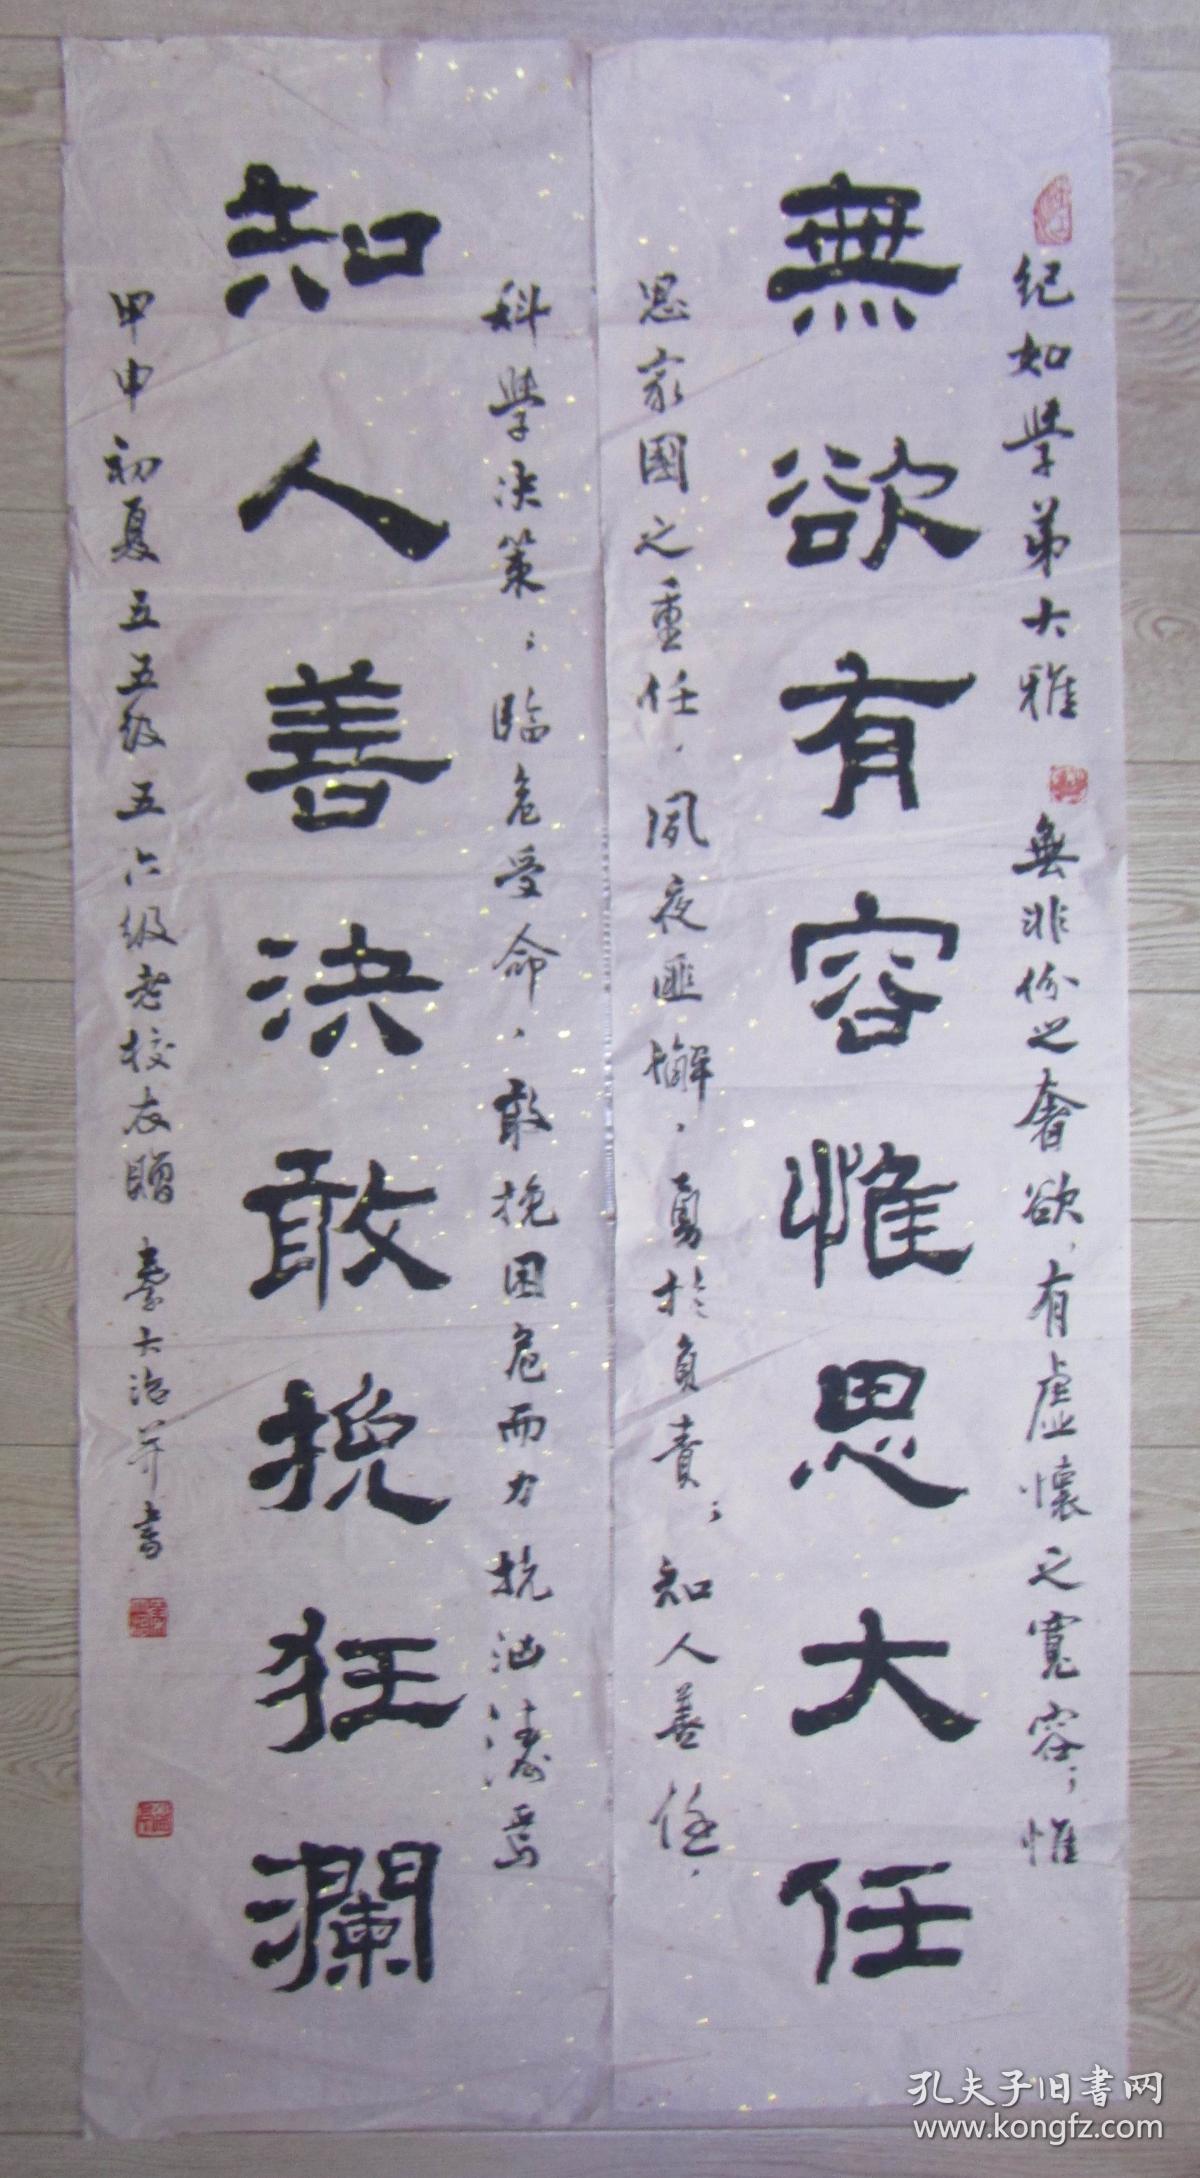 紀如學弟大雅 無非份之奢欲，有虛懷之寬容；惟
無欲有容惟思大任
思家國之重任，夙夜匪懈，勇於負責；知人善任，
科學決策；臨危受命，敢挽困危而力抗汹濤焉
知人善決敢挽狂瀾
甲申初夏五五級五六級老校友贈 秦大治并書
孔夫子旧書网
www.kongfz.com